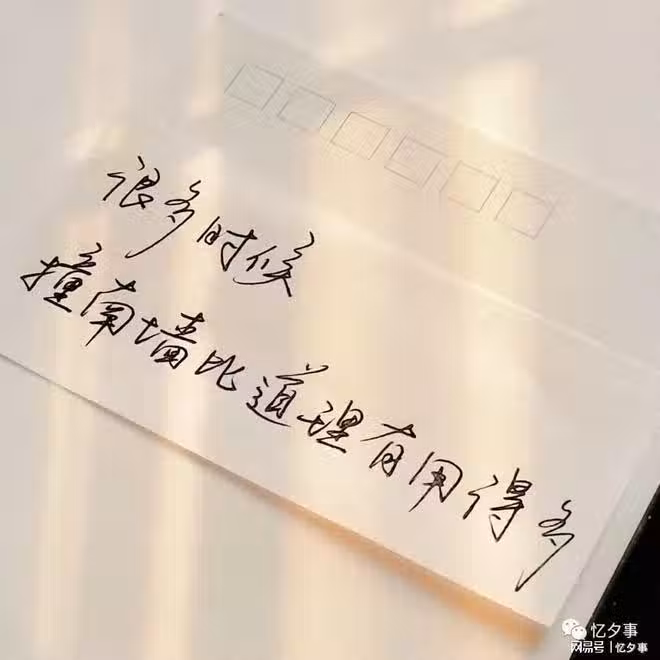 很多时候
撞南墙比道理有用得多
忆夕事
网易号 | 忆夕事